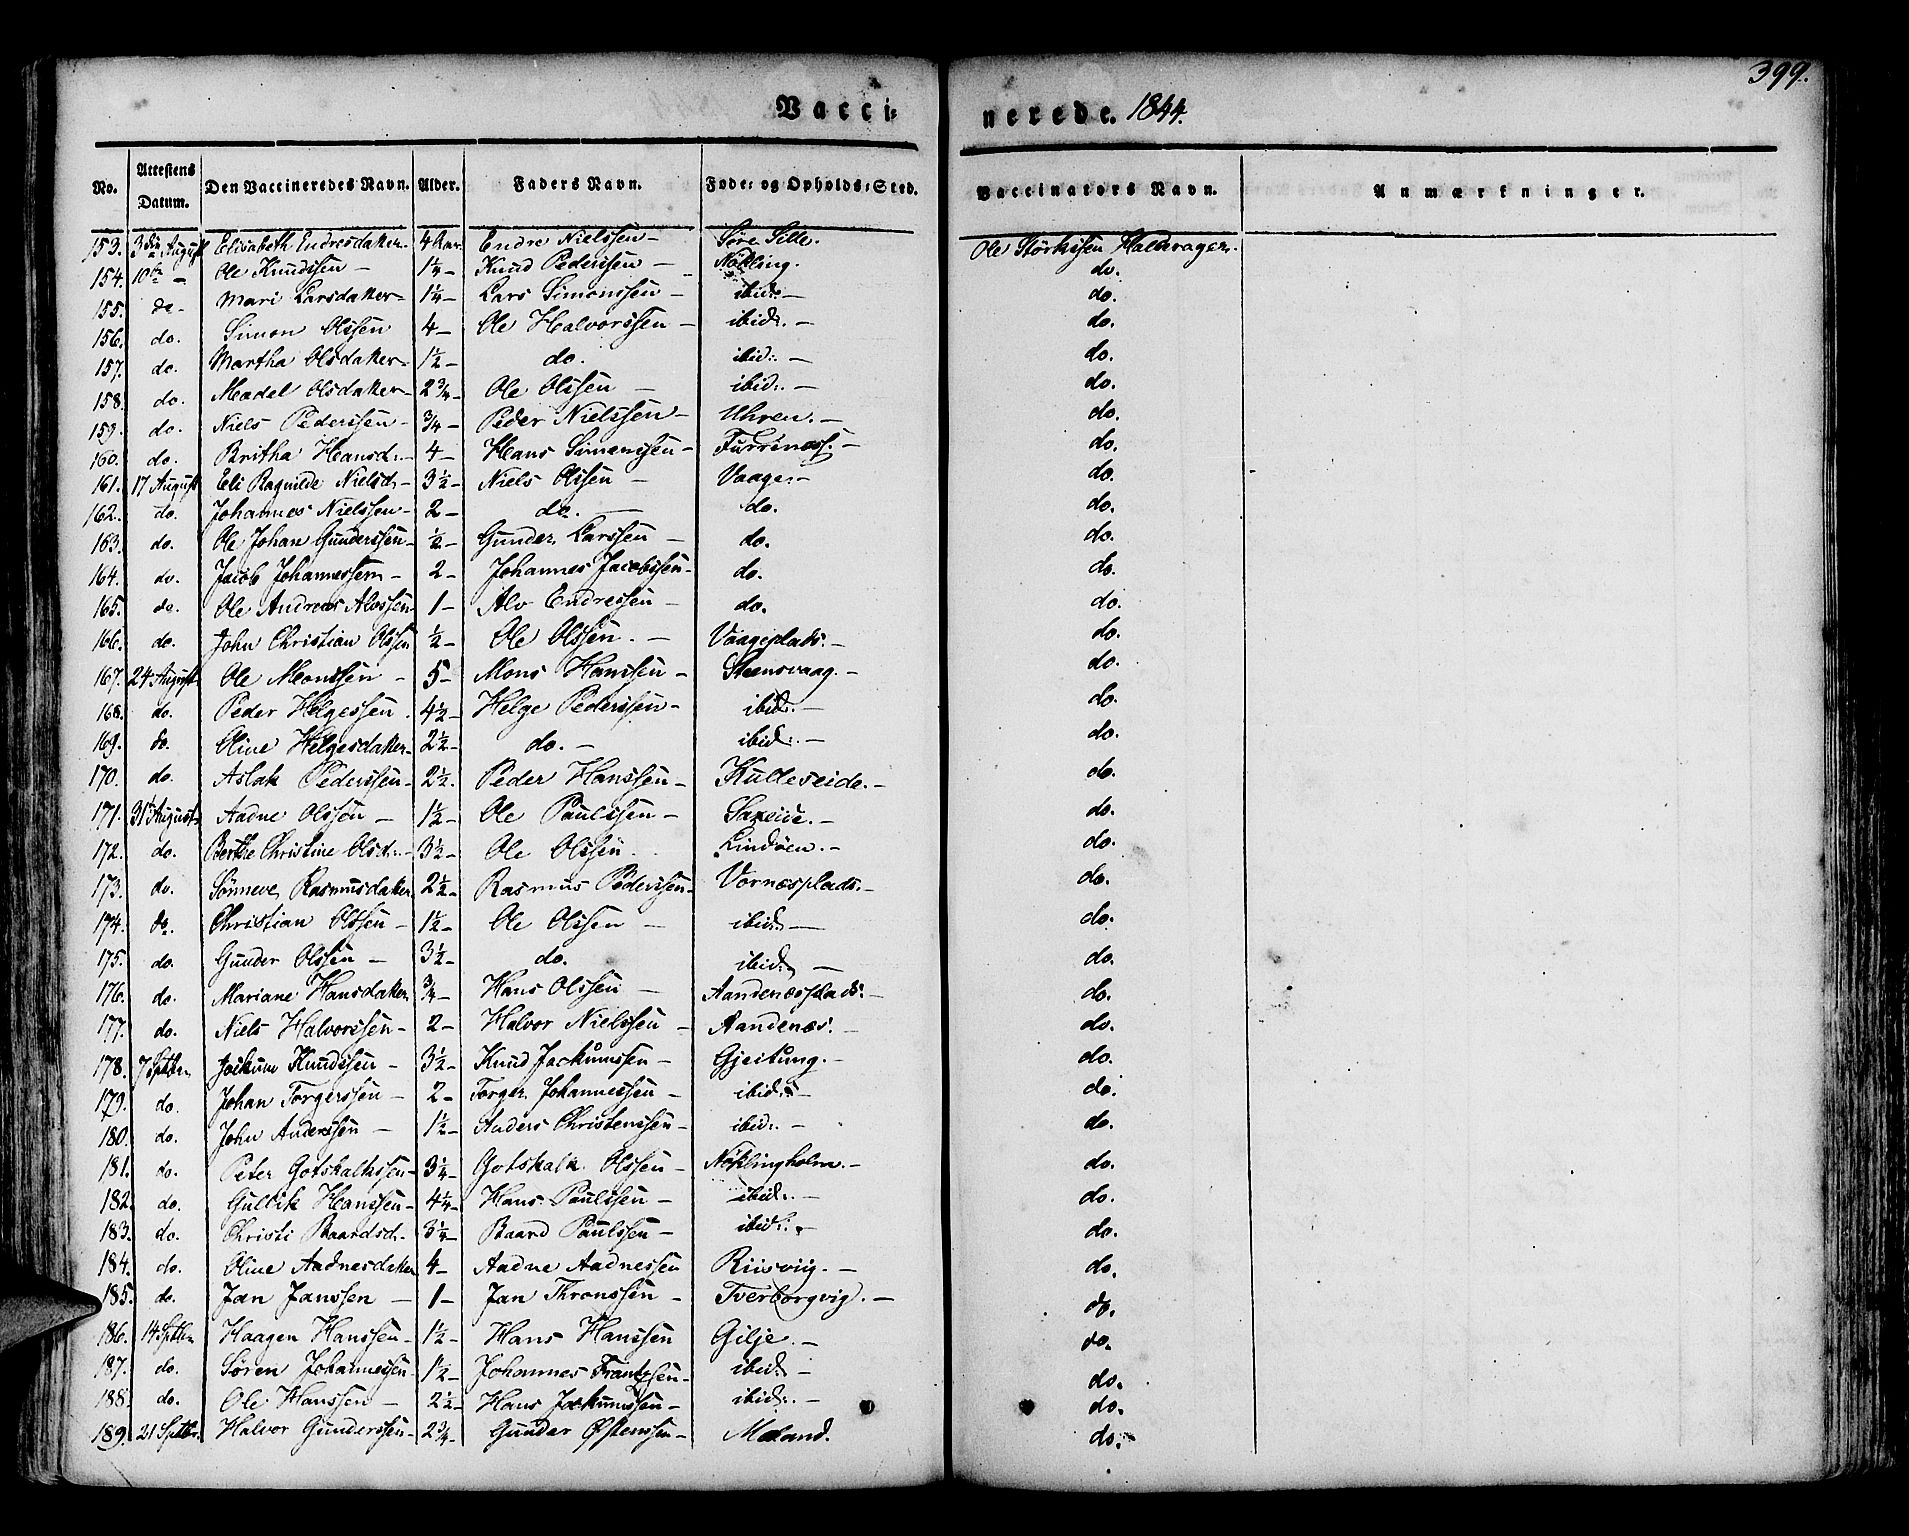 399.
Vacci- nerede. 1844.
No. Attestens Datum. Den Vaccineredes Navn. Alder. Faders Navn. Føde- og Opholds-Sted. Vaccinators Navn. Anmærkninger.
153. 3die August Elisabeth Endresdatter 4 Aar Endre Nielssen – Søre Sille. Ole Størkssen Haldorager.
154. 10de – Ole Knudssen – 1¼ – Knud Pederssen – Nökling. do.
155. do – Mari Larsdatter – 1¼ – Lars Simonssen – ibid: – do.
156. do. Simon Olssen 4 – Ole Halvorssen – ibid: – do.
157. do. Martha Olsdatter – 1½ – do. ibid: – do.
158. do. Madel Olsdatter – 2¾ – Ole Olssen – ibid: – do.
159. do. Niels Pederssen – ¾ – Peder Nielssen – Uhren. – do.
160. do. Britha Hansd: – 4 – Hans Simonssen – Furrenæs. – do.
161. 17 August Eli Ragnilde Nielsd: – 3½ – Niels Olssen – Vaage – do.
162. do. Johannes Nielssen – 2 – do. – do. do.
163. do. Ole Johan Gunderssen – ½ – Gunder Larssen – do. do.
164. do. Jacob Johannessen – 2 – Johannes Jacobssen – do. do.
165. do. Ole Andreas Alvssen 1 – Alv Endressen – do. do.
166. do. John Christian Olssen ½ – Ole Olssen. – Vaageplads. – do.
167. 24 August Ole Monssen – 5 – Mons Hanssen – Steensvaag. – do.
168. do. Peder Helgessen. 4½ – Helge Pederssen – ibid: – do.
169. do. Oline Helgesdatter 2½ – do. – ibid: – do.
170. do. Aslak Pederssen – 2½. Peder Hanssen – Kulleseide. – do.
171. 31 August Aadne Olssen – 1½ – Ole Paulssen – Saxeide. – do.
172. do. Berthe Christine Olsd: – 3½ – Ole Olssen Lindöen. – do.
173. do. Sönneve Rasmusdatter 2½ – Rasmus Pederssen – Vornæsplads. – do.
174. do. Christian Olssen – 1½ – Ole Olssen – ibid: – do.
175. do. Gunder Olssen – 3½ – do. ibid: – do.
176. do. Mariane Hansdatter ¾ – Hans Olssen – Aandenæsplads: – do.
177. do. Niels Halvorssen – 2 – Halvor Nielssen – Aandenæs. – do.
178. 7 Septbr Jockum Knudssen – 3½ – Knud Jackumssen – Gjeitung. – do.
179. do. Johan Torgerssen – 2 – Torger Johannessen – ibid: – do.
180. do. John Anderssen – 1½ – Anders Christenssen – ibid: – do.
181. do. Peter Gotskalkssen – 3¼ – Gotskalk Olssen – Nöklingholm. – do.
182. do. Gullik Hanssen – 4¼ – Hans Paulssen – ibid: – do.
183. do. Christi Baardsd: – 3¼ – Baard Paulssen – ibid: – do.
184. do. Oline Aadnesdatter 4 – Aadne Aadnessen Riisviig. – do.
185. do. Jan Janssen – 1 – Jan Thronssen – Tverborgvig. – do.
186. 14 Septbr Haagen Hanssen – 1½ – Hans Hanssen Gilje. – do.
187. do. Søren Johannessen – 1½ – Johannes Frantzssen – ibid: – do.
188. do. Ole Hanssen – 2½ – Hans Jockumssen – ibid: – do.
189. 21 Septbr. Halvor Gunderssen – 2¾ – Gunder Østenssen – Meland. do.